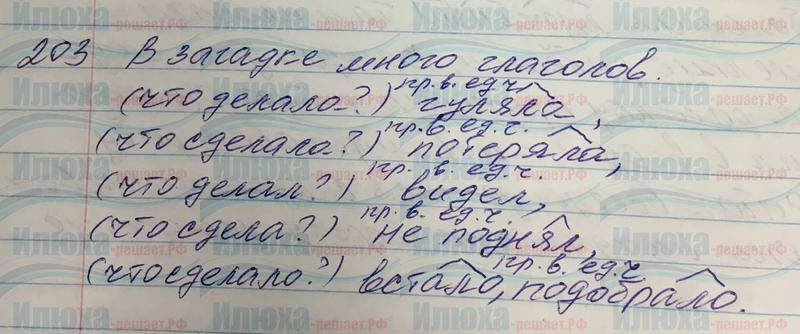 203 В загадке много глаголов.
пр. в. ед. ч.
(что делала?) гуляла,
пр. в. ед. ч.
(что сделала?) потеряла,
пр. в. ед. ч.
(что делал?) видел,
пр. в. ед. ч.
(что сдела?) не поднял,
пр. в. ед. ч.
(что сделало?) встало, подобрало.
Илюха-решает.РФ